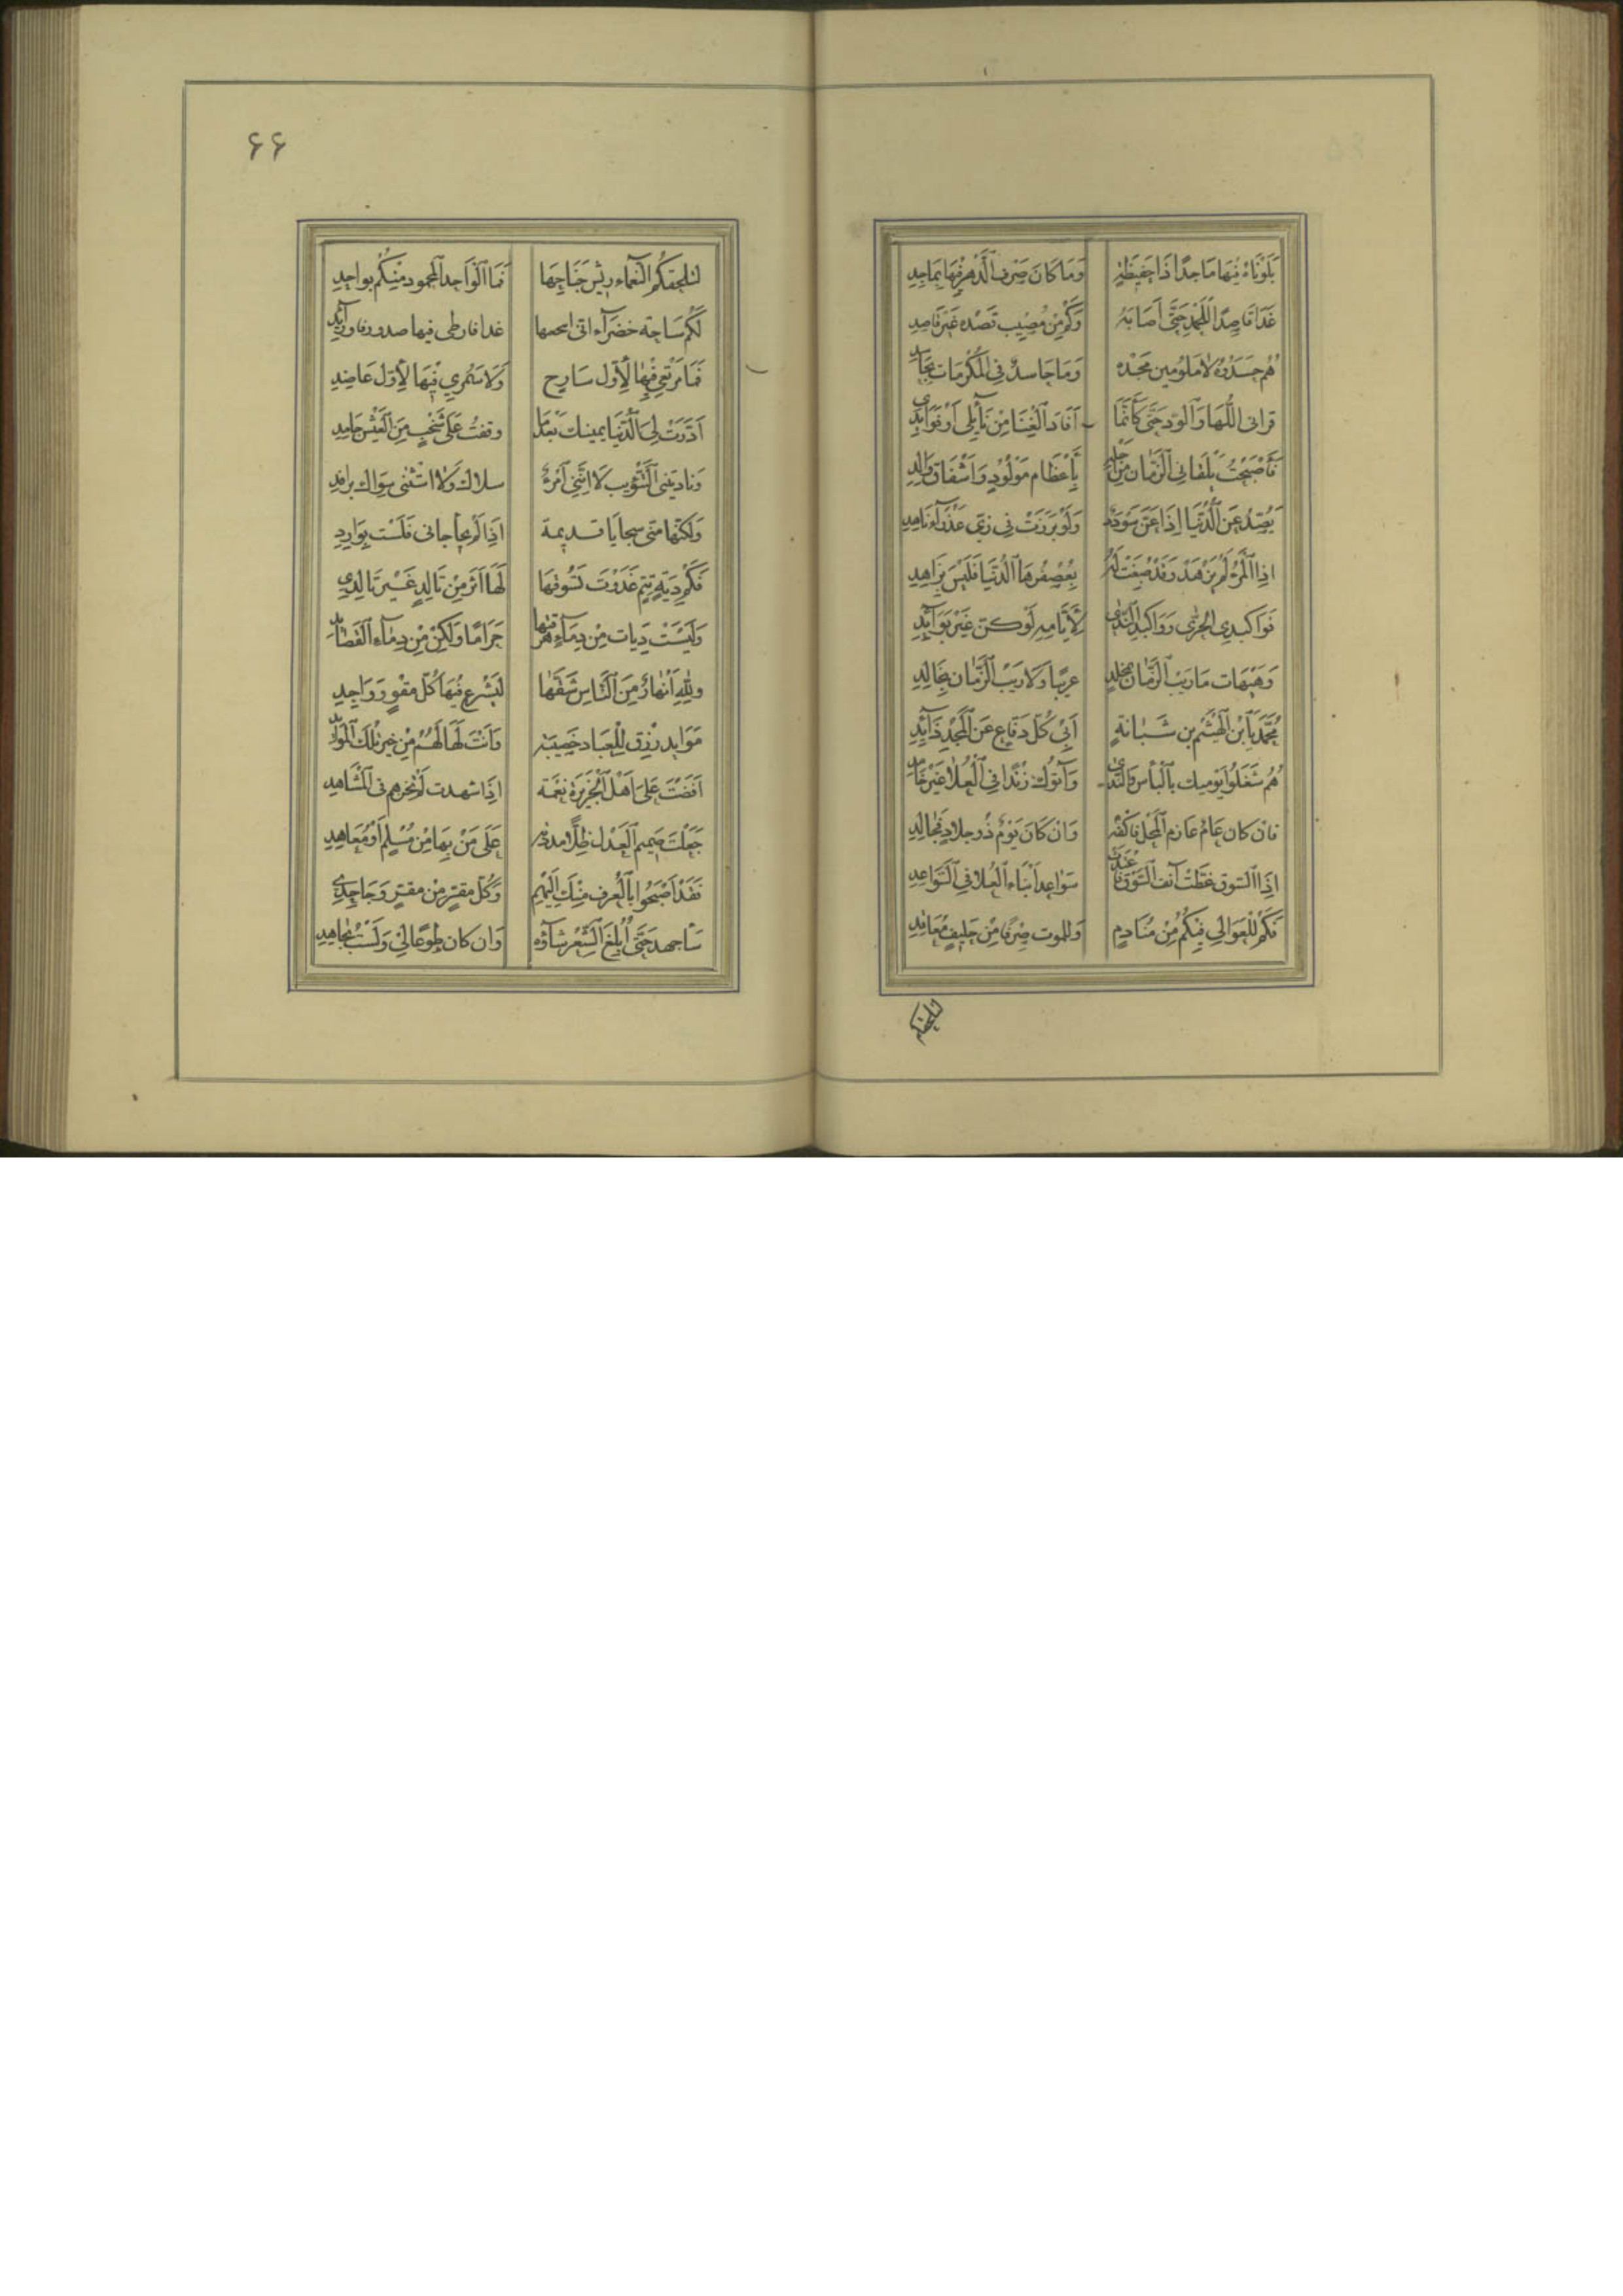 بَلَوْنَاهُ فِيهَا مَاجِدًا ذَا حَفِيظَةٍ وَمَا كَانَ صَرْفُ الدَّهْرِ فِيهَا بِمَاجِدِ
غَدَا قَاصِدًا لِلْحَمْدِ حَتَّى أَصَابَهُ وَكَمْ مِنْ مُصِيبٍ قَصْدَهُ غَيْرُ قَاصِدِ
هُمُ حَسَدُوهُ لَا مَلُومِينَ مَجْدَهُ وَمَا حَاسِدٌ فِي الْمَكْرُمَاتِ بِحَاسِدِ
قراني اللُّهَا وَالْوُدَّ حَتَّى كَأَنَّمَا أَفَادَ الْغِنَا مِنْ نَائِلِي أَوْ فَوَائِدِي
فَأَصْبَحْتُ يَلْقَانِي الزَّمَانُ مِنْ أَجْلِهِ بِإِعْظَامِ مَوْلُودٍ وَإِشْفَاقِ وَالِدِ
يَصُدُّ عَنِ الدُّنْيَا إِذَا عَنَّ سُودَدٌ وَلَوْ بَرَزَتْ فِي زِيِّ عَذْرَاءَ نَاهِدِ
إِذَا الْمَرْءُ لَمْ يَزْهَدْ وَقَدْ صُبِغَتْ لَهُ بِعُصْفُرِهَا الدُّنْيَا فَلَيْسَ بِزَاهِدِ
فَوَا كَبِدِي الْحَرَّى وَوَا كَبِدَ النَّدَى لِأَيَّامِهِ لَوْ كُنَّ غَيْرَ بَوَائِدِ
وَهَيْهَات مَا رَيْبُ الزَّمَانِ بِمُخْلِدٍ غريبًا وَلَا رَيْبُ الزَّمَانِ بِخَالِدِ
مُحَمَّدُ يَا ابْنَ الْهَيْثَمِ بْنِ شَبَانَةٍ أَبِي كُلِّ دَفَّاعٍ عَنِ الْمَجْدِ ذَائِدِ
هُمُ شَغَلُوا يَوْمَيْكَ بِالْبَأْسِ وَالنَّدَى وَآتَوْكَ زَنْدًا فِي الْعُلَا غَيْرَ خَامِدِ
فَإِنْ كَانَ عَامٌ عَارِمُ الْمَحْلِ فَاكْفِهِ وَإِنْ كَانَ يَوْمٌ ذُو جِلَادٍ فَجَالِدِ
إِذَا السُّوقُ غَطَّتْ آنُفَ السُّوقِ وَاغْتَدَتْ سَوَاعِدَ أَبْنَاءِ الْعُلَا فِي السَّوَاعِدِ
فَكَمْ لِلْعَوَالِي فِيكُمُ مِنْ مُنَادِمٍ وَلِلْمَوْتِ صِرْفًا مِنْ حَلِيفٍ مُعَاقِدِ
۶۶
لتلحفكم النَّعْمَاءُ رِيشَ جَنَاحِهَا فَمَا الْوَاحِدُ الْمَحْمُودُ مِنْكُمْ بِوَاحِدِ
لَكُمْ سَاحَةٌ خَضْرَاءُ أَنَّى انتجعتها غدا فارطي فيها صدوقا ورائدي
فَمَا مَرْتَعِي فِيهَا لِأَوَّلِ سَارِحٍ وَلَا سَمُرِي فِيهَا لِأَوَّلِ عَاضِدِ
أَدَرَّتْ لِيَ الدُّنْيَا يَمِينُكَ بَعْدَمَا وَقَفْتُ عَلَى شُخْبٍ مِنَ الْعَيْشِ جَامِدِ
وَنَادَتْنِي التَّثْوِيبَ لَا أَنَّنِي امْرُؤٌ سلاك وَلَا اسْتَثْنَى سِوَاكَ بِرَافِدِ
وَلَكِنَّهَا مِنِّي سَجَايَا قَدِيمَةٌ إِذَا لَمْ يُجَأْجَأْ بي فَلَسْتُ بِوَارِدِ
فَكَمْ دِيَةٍ تِمٍّ غَدَوْتَ تَسُوقُهَا لَهَا أَثَرٌ مِنْ تَالِدٍ غَيْرِ تَالِدِي
وَلَيْسَتْ دِيَاتٍ مِنْ دِمَاءٍ هَرَقْتَهَا حَرَامًا وَلَكِنْ مِنْ دِمَاءِ الْقَصَائِدِ
وَلِلَّهِ أَنْهَارٌ مِنَ النَّاسِ شَقَّهَا لِيَشْرَعَ فِيهَا كُلُّ مُقْوٍ وَوَاجِدِ
مَوَائِدُ رِزْقٍ لِلْعِبَادِ خَصِيبَةٌ وَأَنْتَ لَهَا لَهُمْ مِنْ خَيْرِ تِلْكَ الْمَوَائِدِ
أَفَضْتَ عَلَى أَهْلِ الْجَزِيرَةِ نِعْمَةً إِذَا شهدت لَمْ تُخْزِهِمْ فِي الْمَشَاهِدِ
جَعَلْتَ صَمِيمَ الْعَدْلِ ظِلًّا مَدَدْتَهُ عَلَى مَنْ بِهَا مِنْ مُسْلِمٍ أَوْ مُعَاهِدِ
فَقَدْ أَصْبَحُوا بِالْعُرْفِ مِنْكَ إِلَيْهِمِ وَكُلٌّ مُقِرٌّ مِنْ مُقِرٍّ وَجَاحِدِ
سَأَجْهَدُ حَتَّى أُبْلِغَ الشِّعْرَ شَأْوَهُ وَإِنْ كَانَ طَوْعًا لِي وَلَسْتُ بِجَاهِدِ